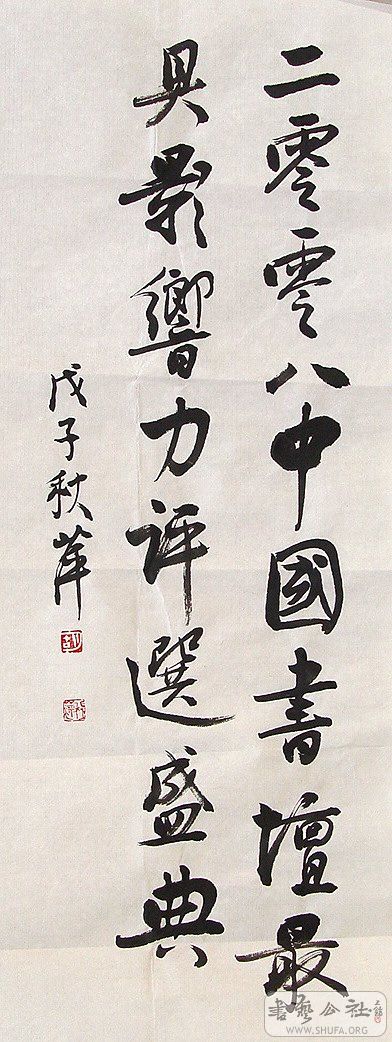 二零零八中國書壇最
具影響力評選盛典
戊子秋萍
書藝公社
WWW.SHUFA.ORG